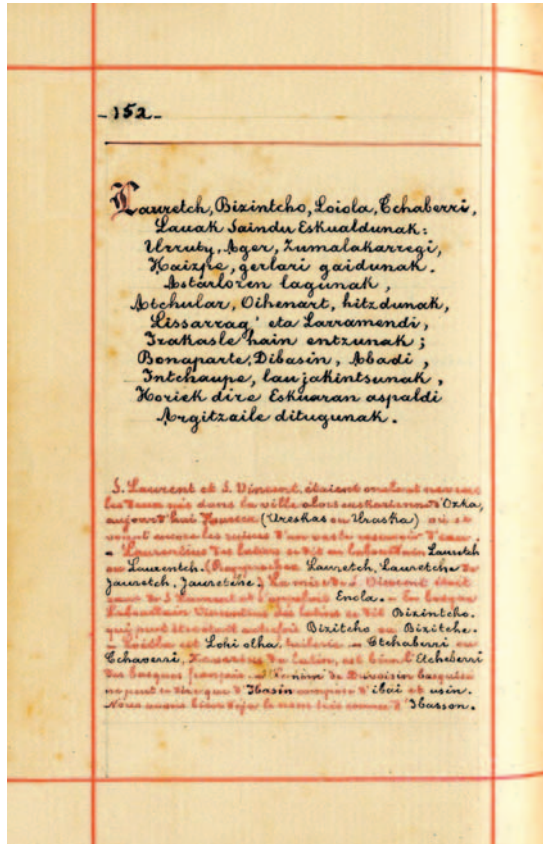 -152-
Lauretch, Bizintcho, Loiola, Etchaberri,
Lauak Saindu Eskualdunak:
Urruty, Ager, Zumalakarregi,
Haizpe, gerlari gaidunak.
Astarloren lagunak,
Atchular, Oihenart, hitzdunak,
Lissarrag' eta Larramendi,
Irakasle hain entzunak;
Bonaparte, Dibasin, Abadi,
Intchaupe, lau jakintsunak,
Horiek dire Eskuaran aspaldi
Argitzaile ditugunak.
S. Laurent et S. Vincent, étaient
les deux nés dans la ville alors euskarienne d'Oxka,
aujourd'hui Huesca (Ureskas ou Uraska) où se
voient encore les ruines d'un vaste réservoir d'eau.
- Laurentius des latins se dit en labourdain Lauretch
ou Laurentch. (Rapprocher Lauretch, Lauretche de
Jauretch, Jauretche.) La mère de S. Vincent était
sœur de S. Laurent et s'appelait Enola. - En basque
labourdain Vincentius des latins se dit Bizintcho.
qui peut être était autrefois Bizitcho ou Bizitche.
Lohi olha, tuilerie. - Etchaberri ou
Echaverri, Xaverius du latin, est bien l'Etcheberri
des basques français. - Le nom de Duvoisin basquisé
ne peut être que d'Ibasin composé d'ibai et usin.
Nous avons bien déjà le nom très connu d'Ibasson.